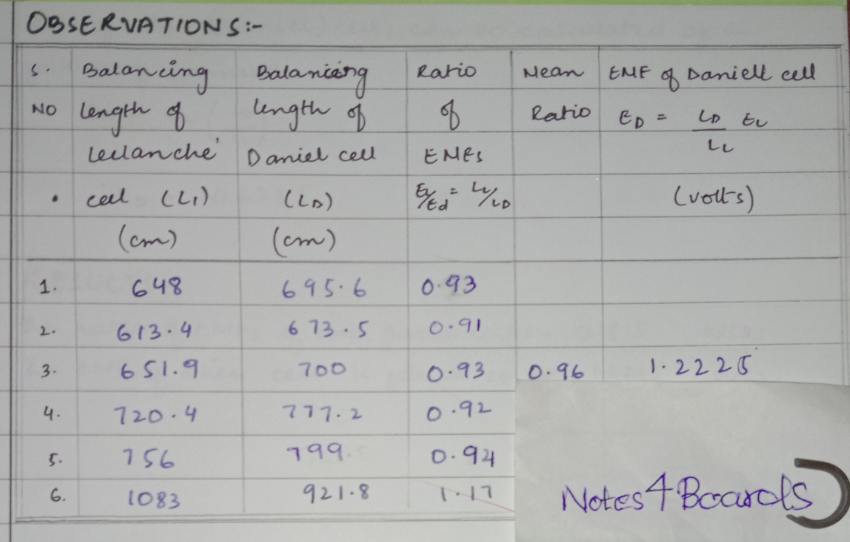 OBSERVATIONS:-
S. Balancing Balancing Ratio Mean EMF of Daniell cell
NO length of length of of Ratio ED = LD EL
Leclanche Daniel cell EMFs LL
cell (L1) (LD) El/Ed = LL/LD (volts)
(cm) (cm)
1. 648 695.6 0.93
2. 613.4 673.5 0.91
3. 651.9 700 0.93 0.96 1.2225
4. 720.4 777.2 0.92
5. 756 799 0.94
6. 1083 921.8 1.17
Notes4Boards